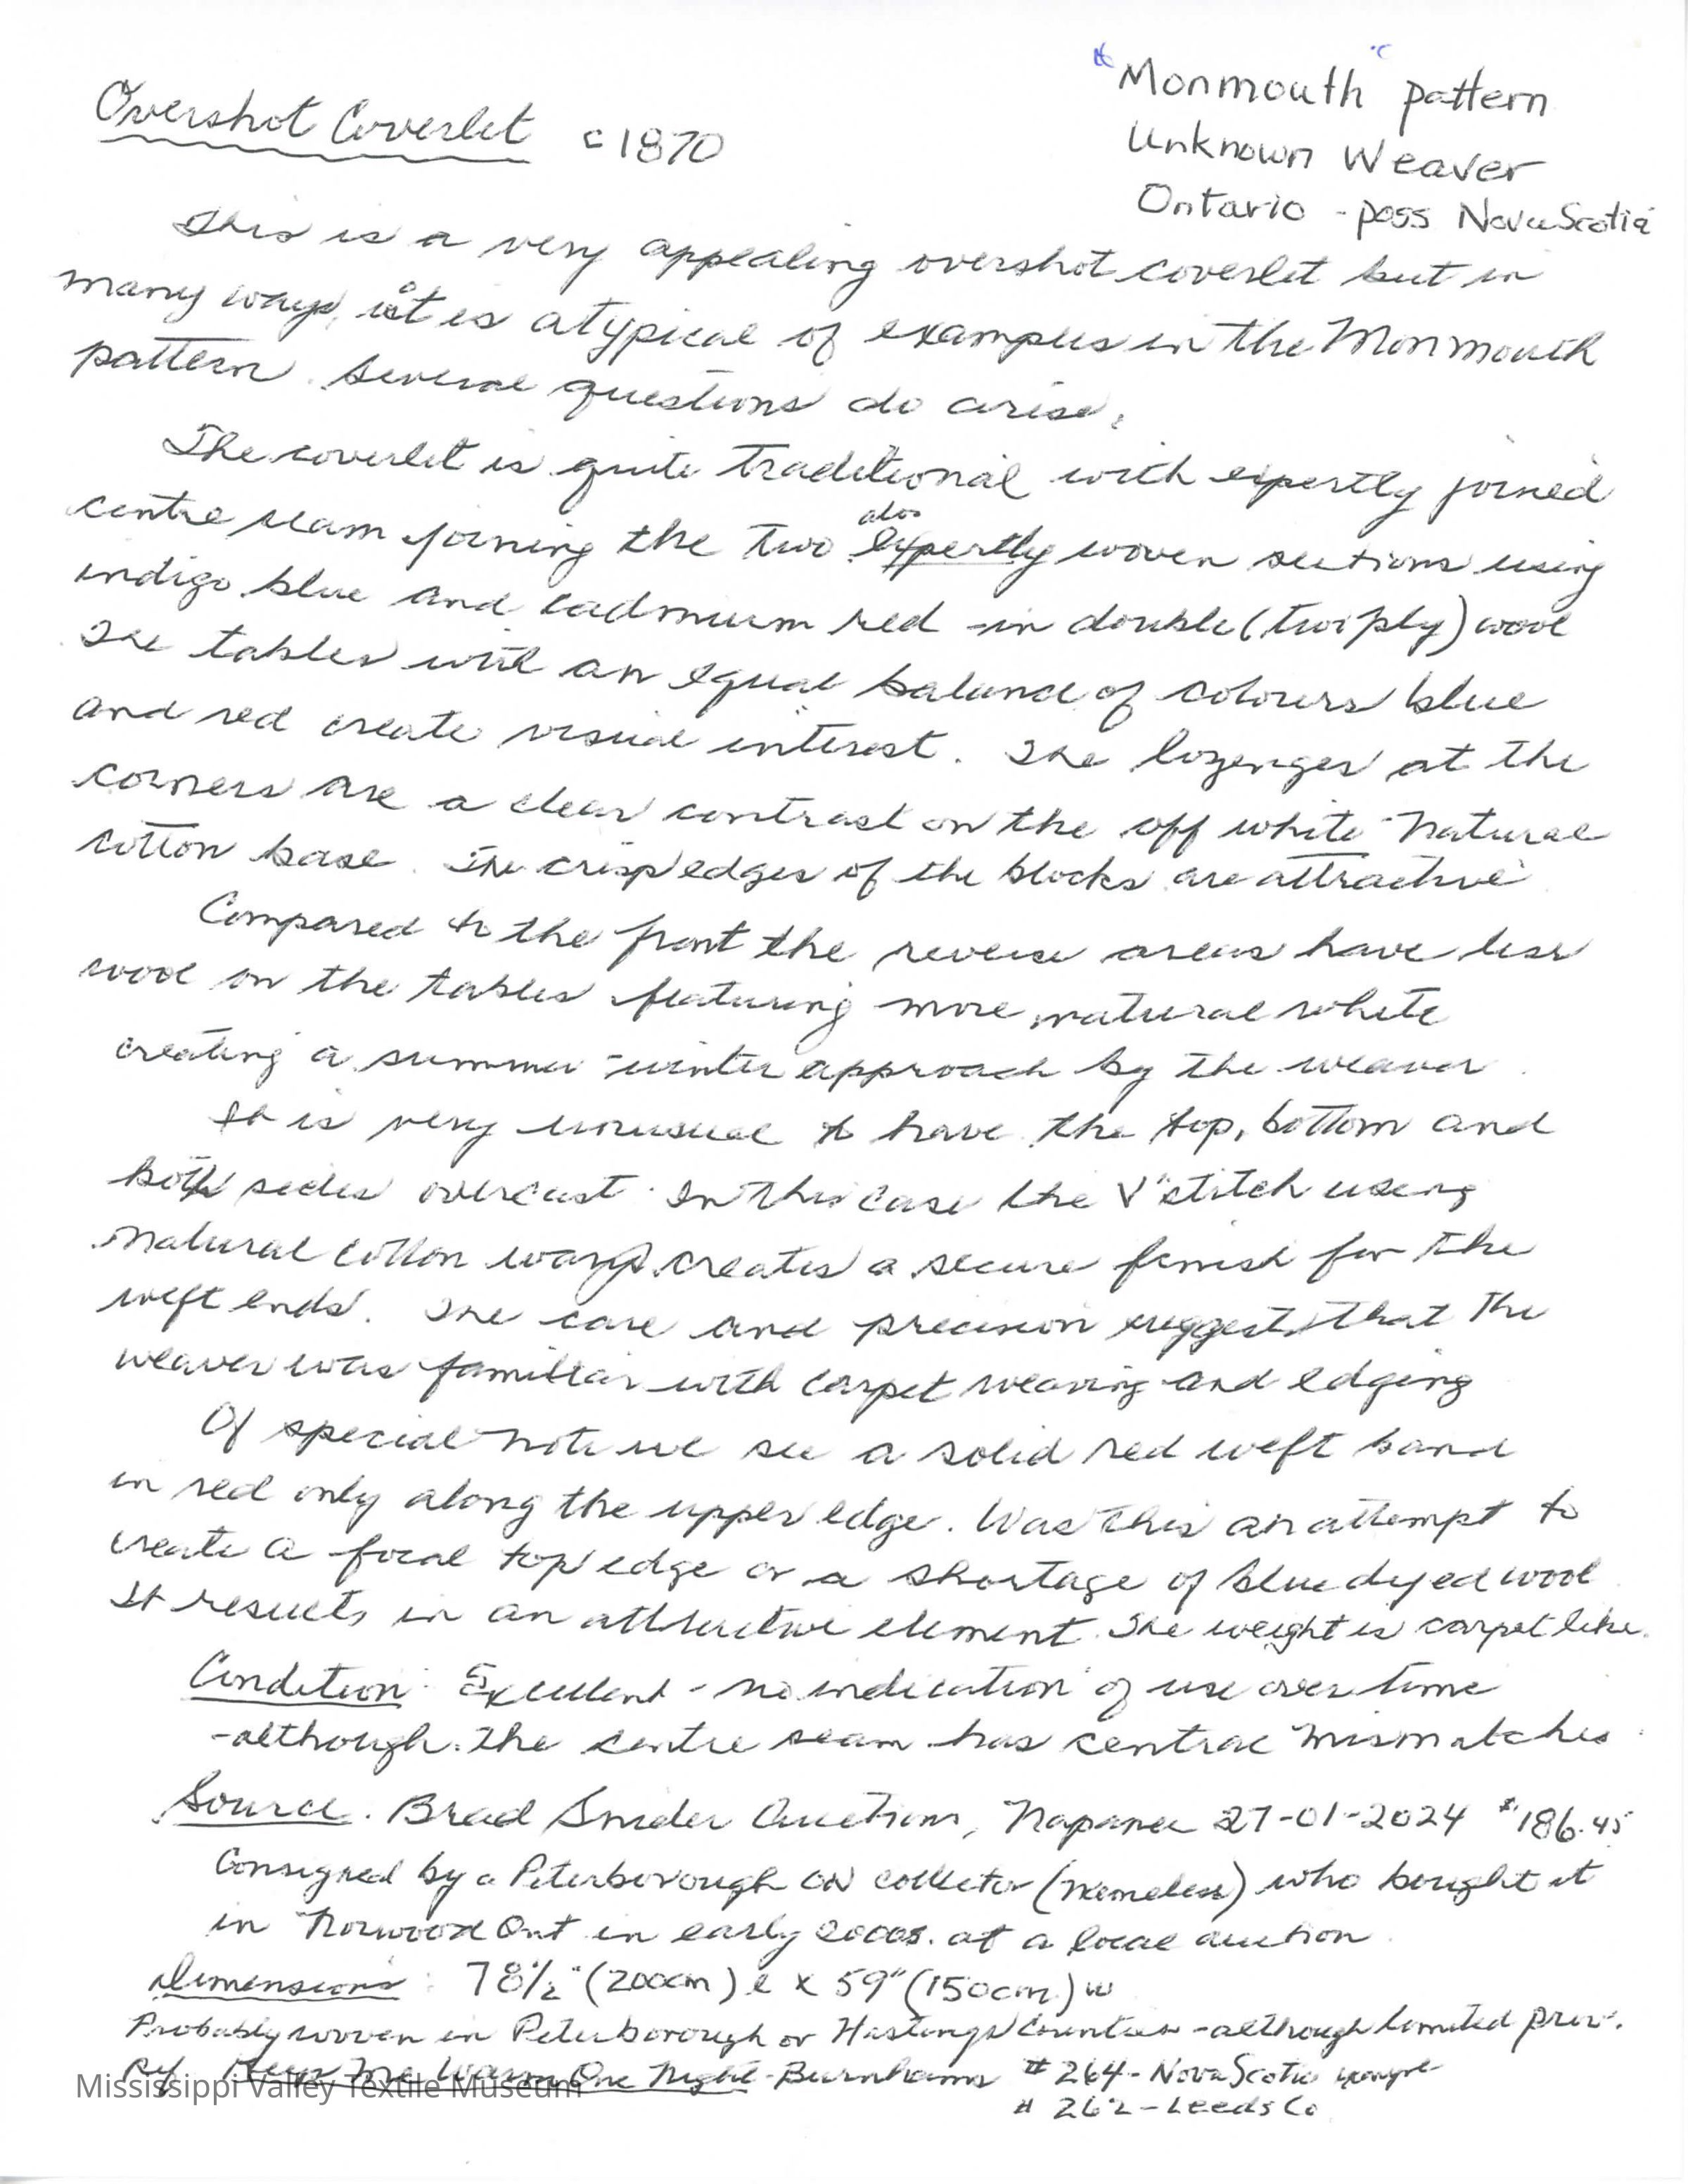 "Monmouth" pattern
Unknown Weaver
Ontario - poss Nova Scotia
Overshot Coverlet c1870
This is a very appealing overshot coverlet but in
many ways, it is atypical of examples in the Monmouth
pattern. Several questions do arise.
The coverlet is quite traditional with expertly joined
centre seam joining the two also expertly woven sections using
indigo blue and cadmium red - in double (two ply) wool
The tables with an equal balance of colours blue
and red create visual interest. The lozenges at the
corners are a clear contrast on the off white natural
cotton base. The crisp edges of the blocks are attractive
Compared to the front the reverse areas have less
wool on the tables featuring more natural white
creating a summer - winter approach by the weaver.
It is very unusual to have the top, bottom and
both sides overcast. In this case the V" stitch using
natural cotton warp creates a secure finish for the
weft ends. The care and precision suggest that the
weaver was familiar with carpet weaving and edging
Of special note we see a solid red weft band
in red only along the upper edge. Was this an attempt to
create a focal top edge or a shortage of blue dyed wool
It results in an attractive element. The weight is carpet like.
Condition: Excellent - no indication of use over time
- although the centre seam has central mismatches
Source. Brad Snider Auctions, Napanee 27-01-2024 $186.45
Consigned by a Peterborough ON collector (nameless) who bought it
in Norwood Ont in early 2000s. at a local auction
Dimensions: 78 1/2" (200cm) l x 59" (150cm) w
Probably woven in Peterborough or Hastings Counties - although limited prov.
Ref Keep Me Warm One Night - Burnhams # 264 - Nova Scotia example
# 262 - Leeds Co
Mississippi Valley Textile Museum